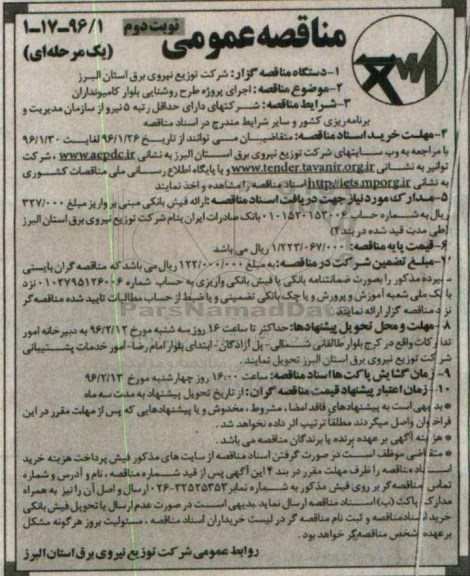 مناقصه عمومی
نوبت دوم
۱-۱۷-۹۶/۱
(یک مرحله‌ای)
۱-دستگاه مناقصه گزار: شرکت توزیع نیروی برق استان البرز
۲-موضوع مناقصه: اجرای پروژه طرح روشنایی بلوار کامیونداران
۳-شرایط مناقصه: شرکتهای دارای حداقل رتبه ۵ نیرو از سازمان مدیریت و
برنامه‌ریزی کشور و سایر شرایط مندرج در اسناد مناقصه
۴-مهلت خرید اسناد مناقصه: متقاضیان می توانند از تاریخ ۹۶/۱/۲۶ لغایت ۹۶/۱/۳۰
با مراجعه به وب سایتهای شرکت توزیع نیروی برق استان البرز به نشانی www.aepdc.ir ، شرکت
توانیر به نشانی www.tender.tavanir.org.ir و یا پایگاه اطلاع رسانی ملی مناقصات کشوری
به نشانی http://iets.mporg.ir اسناد مناقصه را مشاهده و اخذ نمایند
۵-مدارک مورد نیاز جهت دریافت اسناد مناقصه: ارائه فیش بانکی مبنی بر واریز مبلغ ۳۲۷/۰۰۰
ریال به شماره حساب ۰۱۰۱۵۲۰۱۵۳۰۰۶ بانک صادرات ایران بنام شرکت توزیع نیروی برق استان البرز
(طی مدت قید شده در بند ۴)
۶-قیمت پایه مناقصه: ۱/۲۲۳/۰۶۷/۰۰۰ ریال می باشد
۷-مبلغ تضمین شرکت در مناقصه: به مبلغ ۱۲۲/۰۰۰/۰۰۰ ریال می باشد که مناقصه گران بایستی
سپرده مذکور را بصورت ضمانتنامه بانکی یا فیش بانکی واریزی به حساب شماره ۰۱۰۳۷۹۵۱۲۶۰۰۶ نزد
بانک ملی شعبه آموزش و پرورش و یا چک بانکی تضمینی و یا ضبط از حساب مطالبات تایید شده مناقصه گر
نزد مناقصه گزار ارائه نمایند
۸-مهلت و محل تحویل پیشنهادها: حداکثر تا ساعت ۱۶ روز سه شنبه مورخ ۹۶/۲/۱۲ به دبیرخانه امور
تدارکات واقع در کرج بلوار طالقانی شمالی- پل آزادگان- ابتدای بلوار امام رضا- امور خدمات پشتیبانی
شرکت توزیع نیروی برق استان البرز تحویل نمایند.
۹-زمان گشایش پاکت ها اسناد مناقصه: ساعت ۱۶:۰۰ روز چهارشنبه مورخ ۹۶/۲/۱۳
۱۰-زمان اعتبار پیشنهاد قیمت مناقصه گران: از تاریخ تحویل پیشنهاد به مدت سه ماه
* بدیهی است به پیشنهادهای فاقد امضاء، مشروط، مخدوش و یا پیشنهادهایی که پس از مهلت مقرر در این
فراخوان واصل میگردند مطلقا ترتیب اثر داده نخواهد شد.
* هزینه آگهی بر عهده برنده یا برندگان مناقصه می باشد.
* متقاضی موظف است در صورت گرفتن اسناد مناقصه از سایت های مذکور فیش پرداخت هزینه خرید
اسناد مناقصه را ظرف مهلت مقرر در بند ۴ این آگهی پس از قید شماره مناقصه، نام و آدرس و شماره
تماس مناقصه گر بر روی فیش مذکور به شماره نمابر ۳۲۵۲۵۳۵۳-۰۲۶ ارسال و اصل آن را نیز به همراه
مدارک پاکت (ب) اسناد مناقصه ارسال نماید بدیهی است در صورت عدم ارسال یا تحویل فیش بانکی
خرید اسناد مناقصه و ثبت نام مناقصه گر در لیست خریداران اسناد مناقصه، مسئولیت بروز هرگونه مشکل
بر عهده شخص مناقصه‌گر خواهد بود.
روابط عمومی شرکت توزیع نیروی برق استان البرز
ParsNamadData